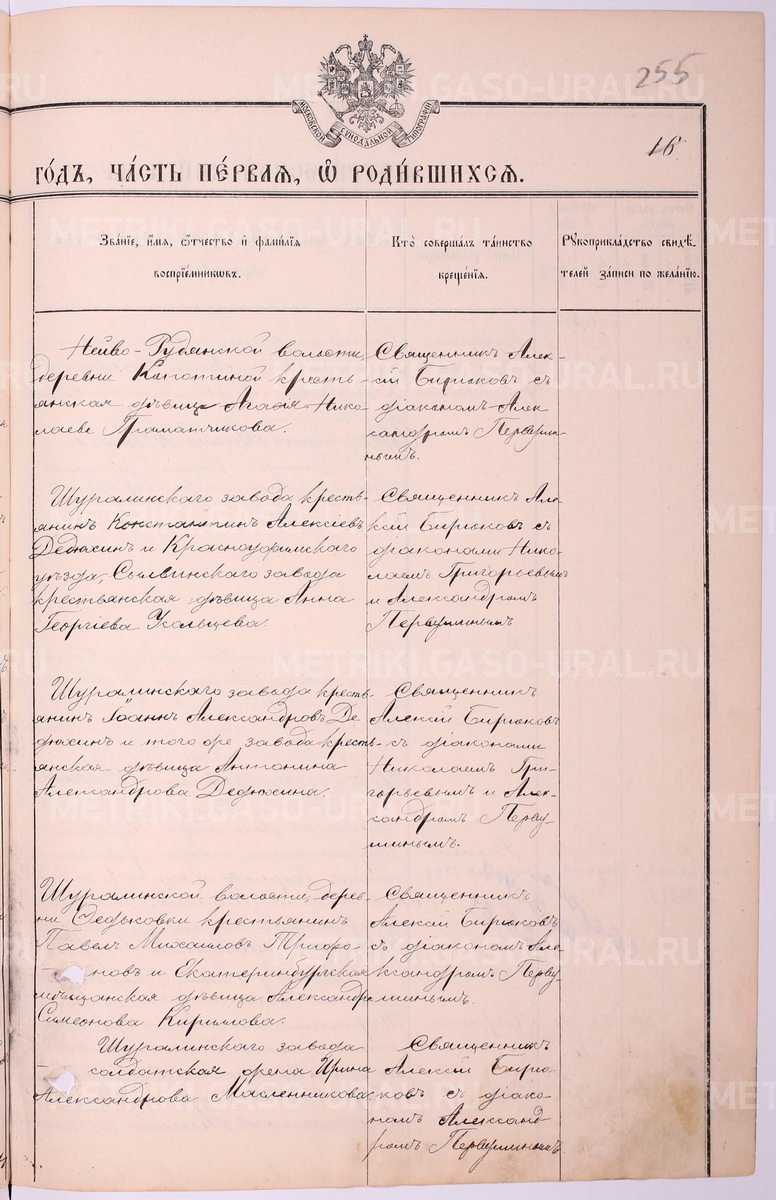 255
16
МОСКОВСКОЙ СѴНОДАЛЬНОЙ ТИПОГРАФІИ
го́дъ, ча́сть пе́рвая, ѡ҆ роди́вшихсѧ.
Зва́нїе, и҆́мя, ѻ҆́тчество и҆ фами́лїя
воспрїе́мниковъ.
Кто̀ соверша́лъ та́инство
креще́нїя.
Рꙋкоприкла́дство свидѣ́-
телей за́писи по жела́нїю.
Нейво-Рудянской волости,
деревни Копотиной кресть-
янская дѣвица Агафія Нико-
лаева Граматчикова.
Священникъ Алек-
сій Бирюковъ съ
діакономъ Алек
сандромъ Первуши-
нымъ.
Шуралинскаго завода кресть-
янинъ Константинъ Алексіевъ
Дедюхинъ и Красноуфимскаго
уѣзда, Сылвинскаго завода
крестьянская дѣвица Анна
Георгіева Кольцева.
Священникъ Але
ксій Бирюковъ съ
діаконами Нико-
лаемъ Григорьевымъ
и Александромъ
Первушинымъ
Шуралинскаго завода кресть-
янинъ Іоаннъ Александровъ Де
дюхинъ и того же завода кресть-
янская дѣвица Антонина
Александрова Дедюхина.
Священникъ
Алексій Бирюковъ
съ діаконами
Николаемъ Гри-
горьевымъ и Алек-
сандромъ Перву-
шинымъ.
Шуралинской волости, дерев-
ни Федьковки крестьянинъ
Павелъ Михаиловъ
новъ и Екатеринбургская
мѣщанская дѣвица Александра
Симеонова Кирилова.
Священникъ
Алексій Бирюковъ
съ діакономъ Але
ксандромъ Перву
шинымъ.
Шуралинскаго завода
солдатская жена Ирина
Александрова Масленникова
Священникъ
Алексій Бирю-
ковъ съ діако-
номъ Александ-
ромъ Первушинымъ
METRIKI.GASO-URAL.RU